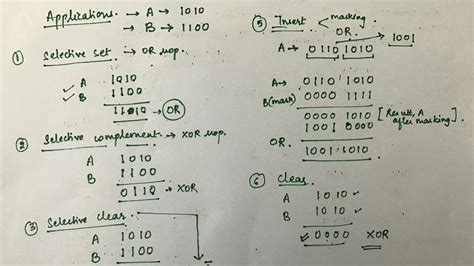 Applications. → A → 1010
→ B → 1100
① Selective set → OR μop.
A 1010
B 1100
1110 → OR
② Selective complement. → XOR μop.
A 1010
B 1100
0110 → XOR
③ Selective clear.
A 1010
B 1100
⑤ Insert < masking
OR.
→ 1001
A → 0110 1010
A → 0110 1010
B(mark) 0000 1111
0000 1010 [Result, A after masking].
1001 0000
OR. 1001 1010
⑥ clear
A 1010
B 1010
0000 XOR